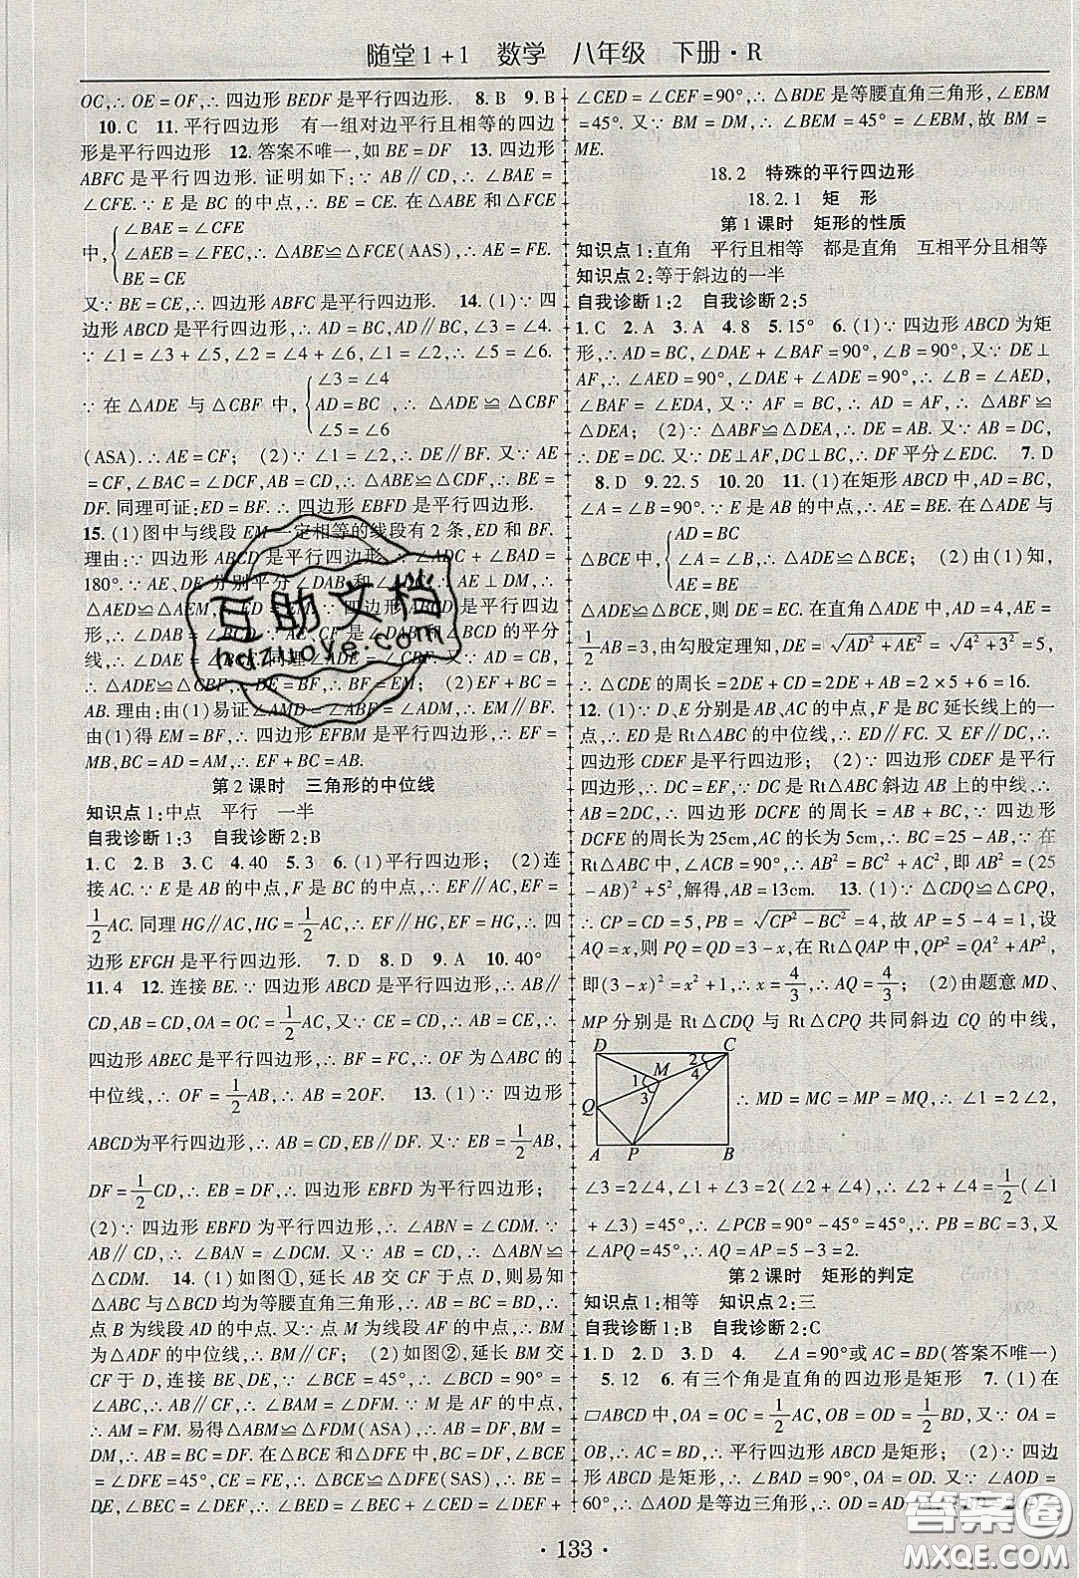 随堂1+1 数学 八年级 下册·R
OC,∴OE=OF,∴四边形BEDF是平行四边形. 8.B 9.B
10.C 11.平行四边形 有一组对边平行且相等的四边
形是平行四边形 12.答案不唯一,如BE=DF 13.四边形
ABFC是平行四边形.证明如下:∵AB∥CD,∴∠BAE=
∠CFE.∵E是BC的中点,∴BE=CE.在△ABE与△FCE
中,{∠BAE=∠CFE
∠AEB=∠FEC,∴△ABE≌△FCE(AAS),∴AE=FE.
BE=CE
又∵BE=CE,∴四边形ABFC是平行四边形. 14.(1)∵四
边形ABCD是平行四边形,∴AD=BC,AD∥BC,∴∠3=∠4.
∵∠1=∠3+∠5,∠2=∠4+∠6,∠1=∠2,∴∠5=∠6.
∵在△ADE与△CBF中,{∠3=∠4
AD=BC,∴△ADE≌△CBF
∠5=∠6
(ASA).∴AE=CF;(2)∵∠1=∠2,∴DE∥BF.又∵AE=
CF,∠BAC=∠DCF,AB=CD,∴△ABE≌△CDF,∴BE=
DF.同理可证:ED=BF.∴四边形EBFD是平行四边形.
15.(1)图中与线段EM一定相等的线段有2条,ED和BF.
理由:∵四边形ABCD是平行四边形,∴∠ADC+∠BAD=
180°.∵AE、DE分别平分∠DAB和∠ADC,∴AE⊥DM,∴
△AED≌△AEM,∴ED=EM.∵四边形ABCD是平行四边
形,∴∠DAB=∠BCD.∵AE、CF是∠DAB和∠BCD的平分
线,∴∠DAE=∠BCF.同理∠ADE=∠CBF.又∵AD=CB,
∴△ADE≌△CBF,∴DE=BF,∴BF=EM;(2)EF+BC=
AB.理由:由(1)易证∠AMD=∠ABF=∠ADM,∴EM∥BF.
由(1)得EM=BF,∴四边形EFBM是平行四边形,∴EF=
MB,BC=AD=AM,∴EF+BC=AB.
第2课时 三角形的中位线
知识点1:中点 平行 一半
自我诊断1:3 自我诊断2:B
1.C 2.B 3.C 4.40 5.3 6.(1)平行四边形;(2)连
接AC.∵E是AB的中点,F是BC的中点,∴EF∥AC,EF=
1/2AC.同理HG∥AC,HG=1/2AC,∴EF∥HG,EF=HG,∴四
边形EFGH是平行四边形. 7.D 8.D 9.A 10.40°
11.4 12.连接BE.∵四边形ABCD是平行四边形,∴AB∥
CD,AB=CD,OA=OC=1/2AC,又∵CE=CD,∴AB=CE,∴
四边形ABEC是平行四边形,∴BF=FC,∴OF为△ABC的
中位线,∴OF=1/2AB,∴AB=2OF. 13.(1)∵四边形
ABCD为平行四边形,∴AB=CD,EB∥DF.又∵EB=1/2AB,
DF=1/2CD,∴EB=DF,∴四边形EBFD为平行四边形;
(2)∵四边形EBFD为平行四边形,∴∠ABN=∠CDM.∵
AB∥CD,∴∠BAN=∠DCM.又∵AB=CD,∴△ABN≌
△CDM. 14.(1)如图①,延长AB交CF于点D,则易知
△ABC与△BCD均为等腰直角三角形,∴AB=BC=BD,∴
点B为线段AD的中点.又∵点M为线段AF的中点,∴BM
为△ADF的中位线,∴BM∥CF;(2)如图②,延长BM交
CF于D,∵∠BCE=45°,∴∠ACE=45°×2+45°=135°,∴
∠BAC+∠ACF=180°,∴∠BAM=∠DFM.∵M是AF的中点,
∴AM=FM.易得△ABM≌△FDM(ASA),∴AB=DF,BM=
DM,∴AB=BC=DF.∵在△BCE和△DFE中,BC=DF,∠BCE
=∠DFE=45°,CE=FE,∴△BCE≌△DFE(SAS),∴BE=
DE,∠BEC=∠DEF,∴∠BED=∠BEC+∠CED=∠DEF+
∠CED=∠CEF=90°,∴△BDE是等腰直角三角形,∠EBM
=45°.又∵BM=DM,∴∠BEM=45°=∠EBM,故BM=
ME.
18.2 特殊的平行四边形
18.2.1 矩 形
第1课时 矩形的性质
知识点1:直角 平行且相等 都是直角 互相平分且相等
知识点2:等于斜边的一半
自我诊断1:2 自我诊断2:5
1.C 2.A 3.A 4.8 5.15° 6.(1)∵四边形ABCD为矩
形,∴AD=BC,∠DAE+∠BAF=90°,∠B=90°,又∵DE⊥
AF,∴∠AED=90°,∠DAE+∠ADE=90°,∴∠B=∠AED,
∠BAF=∠EDA,又∵AF=BC,∴AD=AF,∴△ABF≌
△DEA;(2)∵△ABF≌△DEA,∴DE=AB.又∵AB=DC,∴
DE=DC.又∵DE⊥AF,DC⊥BC,∴DF平分∠EDC. 7.D
8.D 9.22.5 10.20 11.(1)在矩形ABCD中,AD=BC,
∠A=∠B=90°,∵E为AB的中点,∴AE=BE,在△ADE与
△BCE中,{AD=BC
∠A=∠B,∴△ADE≌△BCE;(2)由(1)知,
AE=BE
△ADE≌△BCE,则DE=EC.在直角△ADE中,AD=4,AE=
1/2AB=3,由勾股定理知,DE=√AD²+AE²=√4²+3²=5,
∴△CDE的周长=2DE+CD=2DE+AB=2×5+6=16.
12.(1)∵D、E分别是AB、AC的中点,F是BC延长线上的一
点,∴ED是Rt△ABC的中位线,∴ED∥FC.又EF∥DC,∴
四边形CDEF是平行四边形;(2)∵四边形CDEF是平行四
边形,∴DC=EF,∵DC是Rt△ABC斜边AB上的中线,∴
AB=2DC,∴四边形DCFE的周长=AB+BC.∵四边形
DCFE的周长为25cm,AC的长为5cm,∴BC=25-AB.∵在
Rt△ABC中,∠ACB=90°,∴AB²=BC²+AC²,即AB²=(25
-AB)²+5²,解得,AB=13cm. 13.(1)∵△CDQ≌△CPQ,
∴CP=CD=5,PB=√CP²-BC²=4,故AP=5-4=1,设
AQ=x,则PQ=QD=3-x,在Rt△QAP中,QP²=QA²+AP²,
即(3-x)²=x²+1,∴x=4/3,∴AQ=4/3;(2)由题意MD、
MP分别是Rt△CDQ与Rt△CPQ共同斜边CQ的中线,
D C M Q A P B 1 2 3 4
∴MD=MC=MP=MQ,∴∠1=2∠2,
∠3=2∠4,∠1+∠3=2(∠2+∠4)=90°.∴∠2+∠4=1/2(∠1
+∠3)=45°,∴∠PCB=90°-45°=45°,∴PB=BC=3,又
∠APQ=45°,∴AQ=AP=5-3=2.
第2课时 矩形的判定
知识点1:相等 知识点2:三
自我诊断1:B 自我诊断2:C
1.D 2.D 3.D 4. ∠A=90°或AC=BD(答案不唯一)
5.12 6.有三个角是直角的四边形是矩形 7.(1)在
▱ABCD中,OA=OC=1/2AC,OB=OD=1/2BD,又∵OA=
OB,∴AC=BD,∴平行四边形ABCD是矩形;(2)∵四边
形ABCD是矩形,∴∠BAD=90°,OA=OD.又∵∠AOD=
60°,∴△AOD是等边三角形,∴OD=AD
· 133 ·
互助文档
hdzuoye.com
答案圈
MXQE.COM